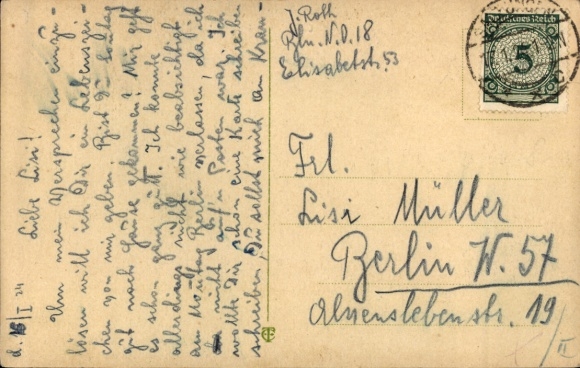 d. 16/I 24
Liebe Lisi!
Um mein Versprechen einzu-
lösen will ich Dir ein Lebenszei-
chen von mir geben. Bist Du Sonntag
gut nach Hause gekommen? Mir geht
es schon ganz gut. Ich konnte
allerdings nicht wie beabsichtigt
am Montag Berlin verlassen, da ich
nicht auf'm Posten war. Ich
wollte Dir schon eine Karte schreiben
schreiben, Du sollst mich am Kran-
J. Roth
Bln. N.O. 18
Elisabetstr. 53
Deutsches Reich
5
Frl.
Lisi Müller
Berlin W. 57
Alvenslebenstr. 19/II